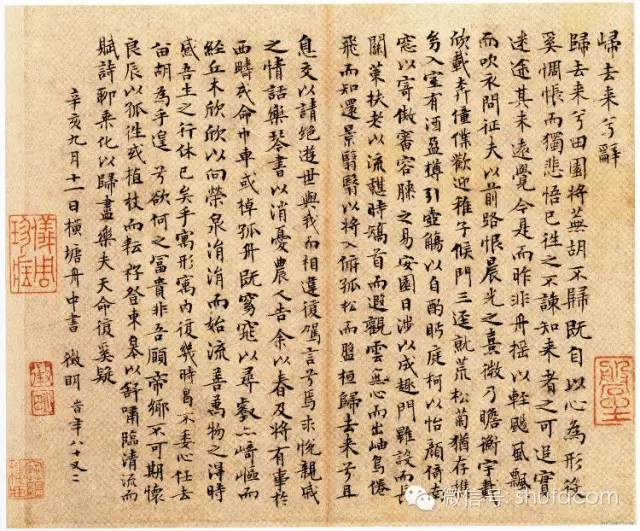 歸去来兮辭
歸去来兮田園將蕪胡不歸既自以心為形役
奚惆悵而獨悲悟已往之不諫知来者之可追實
迷途其未遠覺今是而昨非舟摇以輕颺風飄
而吹衣問征夫以前路恨晨光之熹微乃瞻衡宇載
欣載奔僮僕歡迎稚子候門三逕就荒松菊猶存携
幼入室有酒盈樽引壺觴以自酌眄庭柯以怡顏倚南
窓以寄傲審容膝之易安園日涉以成趣門雖設而長
關策扶老以流憩時矯首而遐觀雲無心而出岫鳥倦
飛而知還景翳翳以將入撫孤松而盤桓歸去来兮且
息交以請絕遊世與我而相違復駕言兮焉求悅親戚
之情話樂琴書以消憂農人告余以春及將有事於
西疇或命巾車或棹孤舟既窈窕以尋壑亦崎嶇而
經丘木欣欣以向榮泉涓涓而始流善萬物之得時
感吾生之行休已矣乎寓形宇內復幾時曷不委心任去
留胡為乎遑兮欲何之富貴非吾願帝鄉不可期懷
良辰以孤往或植杖而耘耔登東皋以舒嘯臨清流而
賦詩聊乘化以歸盡樂夫天命復奚疑
辛亥九月十一日橫塘舟中書 徵明 時年八十又二
儀周珍藏
微信号: